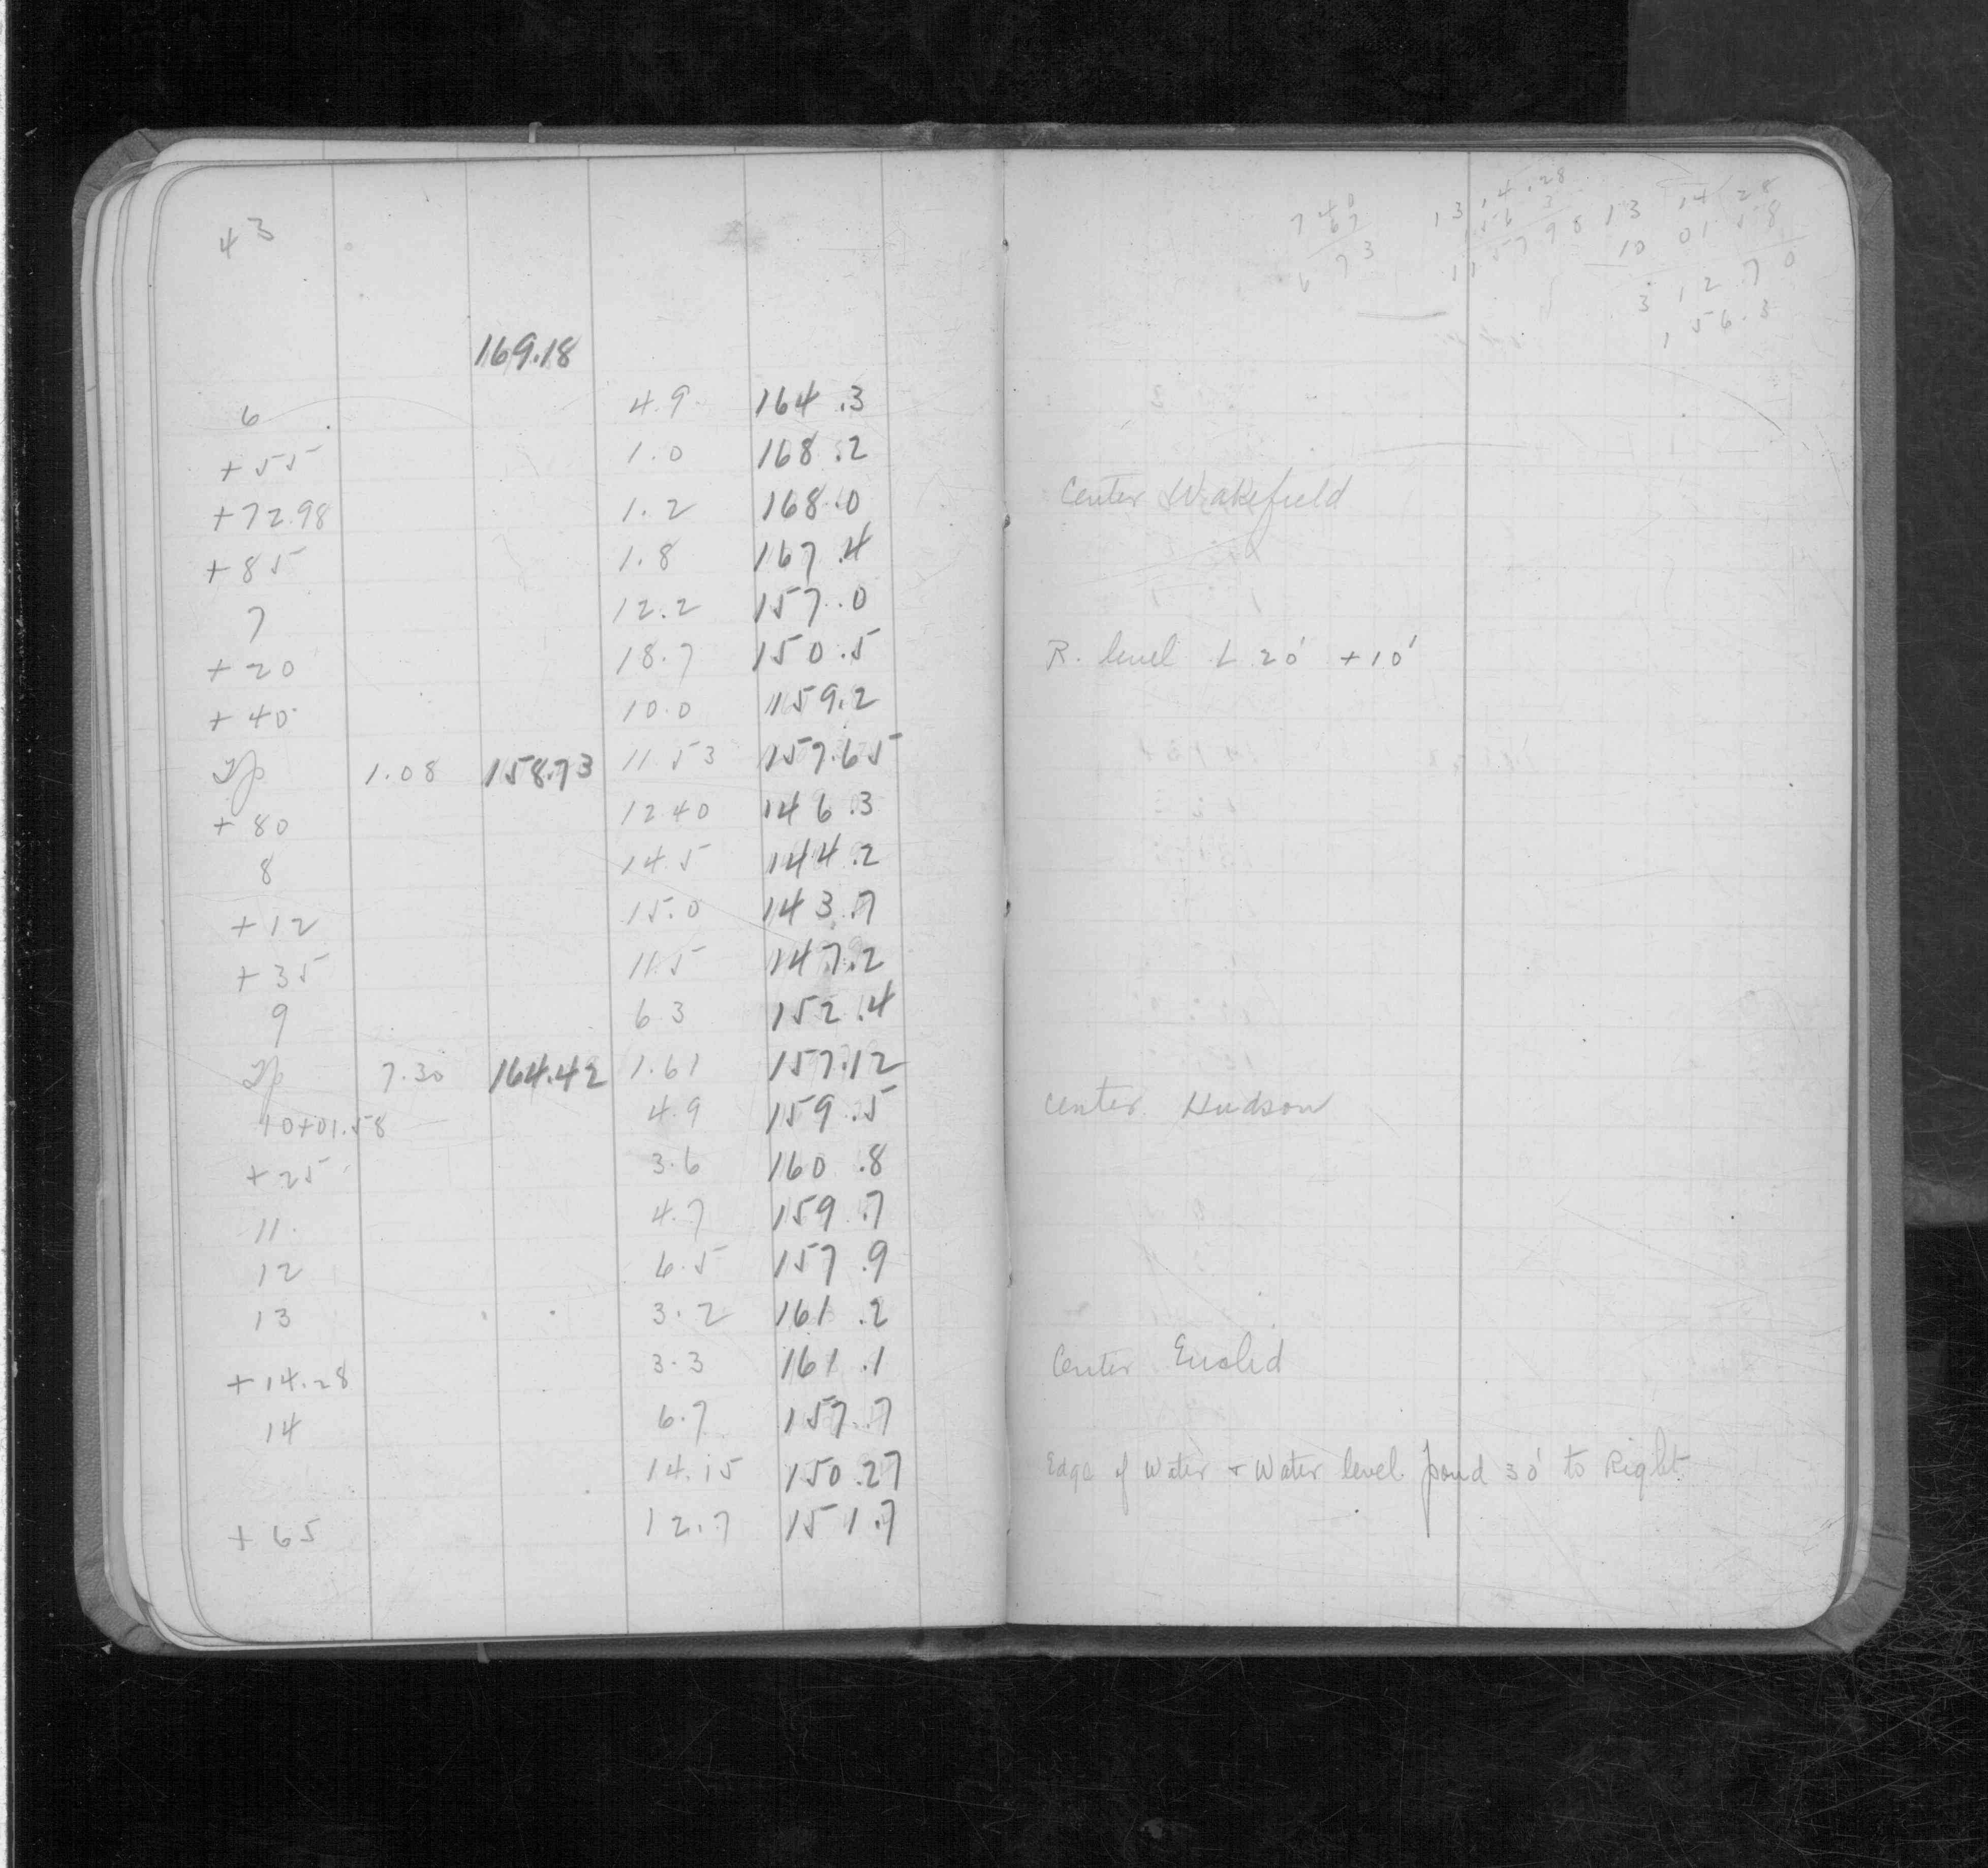 43
169.18
6 4.9 164.3
+55 1.0 168.2
+72.98 1.2 168.0 Center Wakefield
+85 1.8 167.4
7 12.2 157.0
+20 18.7 150.5 R. level L 20' +10'
+40 10.0 159.2
Tp 1.08 158.73 11.53 157.65
+80 12.40 146.3
8 14.5 144.2
+12 15.0 143.7
+35 11.5 147.2
9 6.3 152.4
Tp 7.30 164.42 1.61 157.12
10+01.58 4.9 159.5 Center Hudson
+25 3.6 160.8
11 4.7 159.7
12 6.5 157.9
13 3.2 161.2
+14.28 3.3 161.1 Center Euclid
14 6.7 157.7
14.15 150.27 Edge of Water + Water level pond 30' to Right
+65 12.7 151.7
740
67
673
13 14.28
1 56 3
11 57 98
13 14 28
10 01 58
3 12 70
156.3